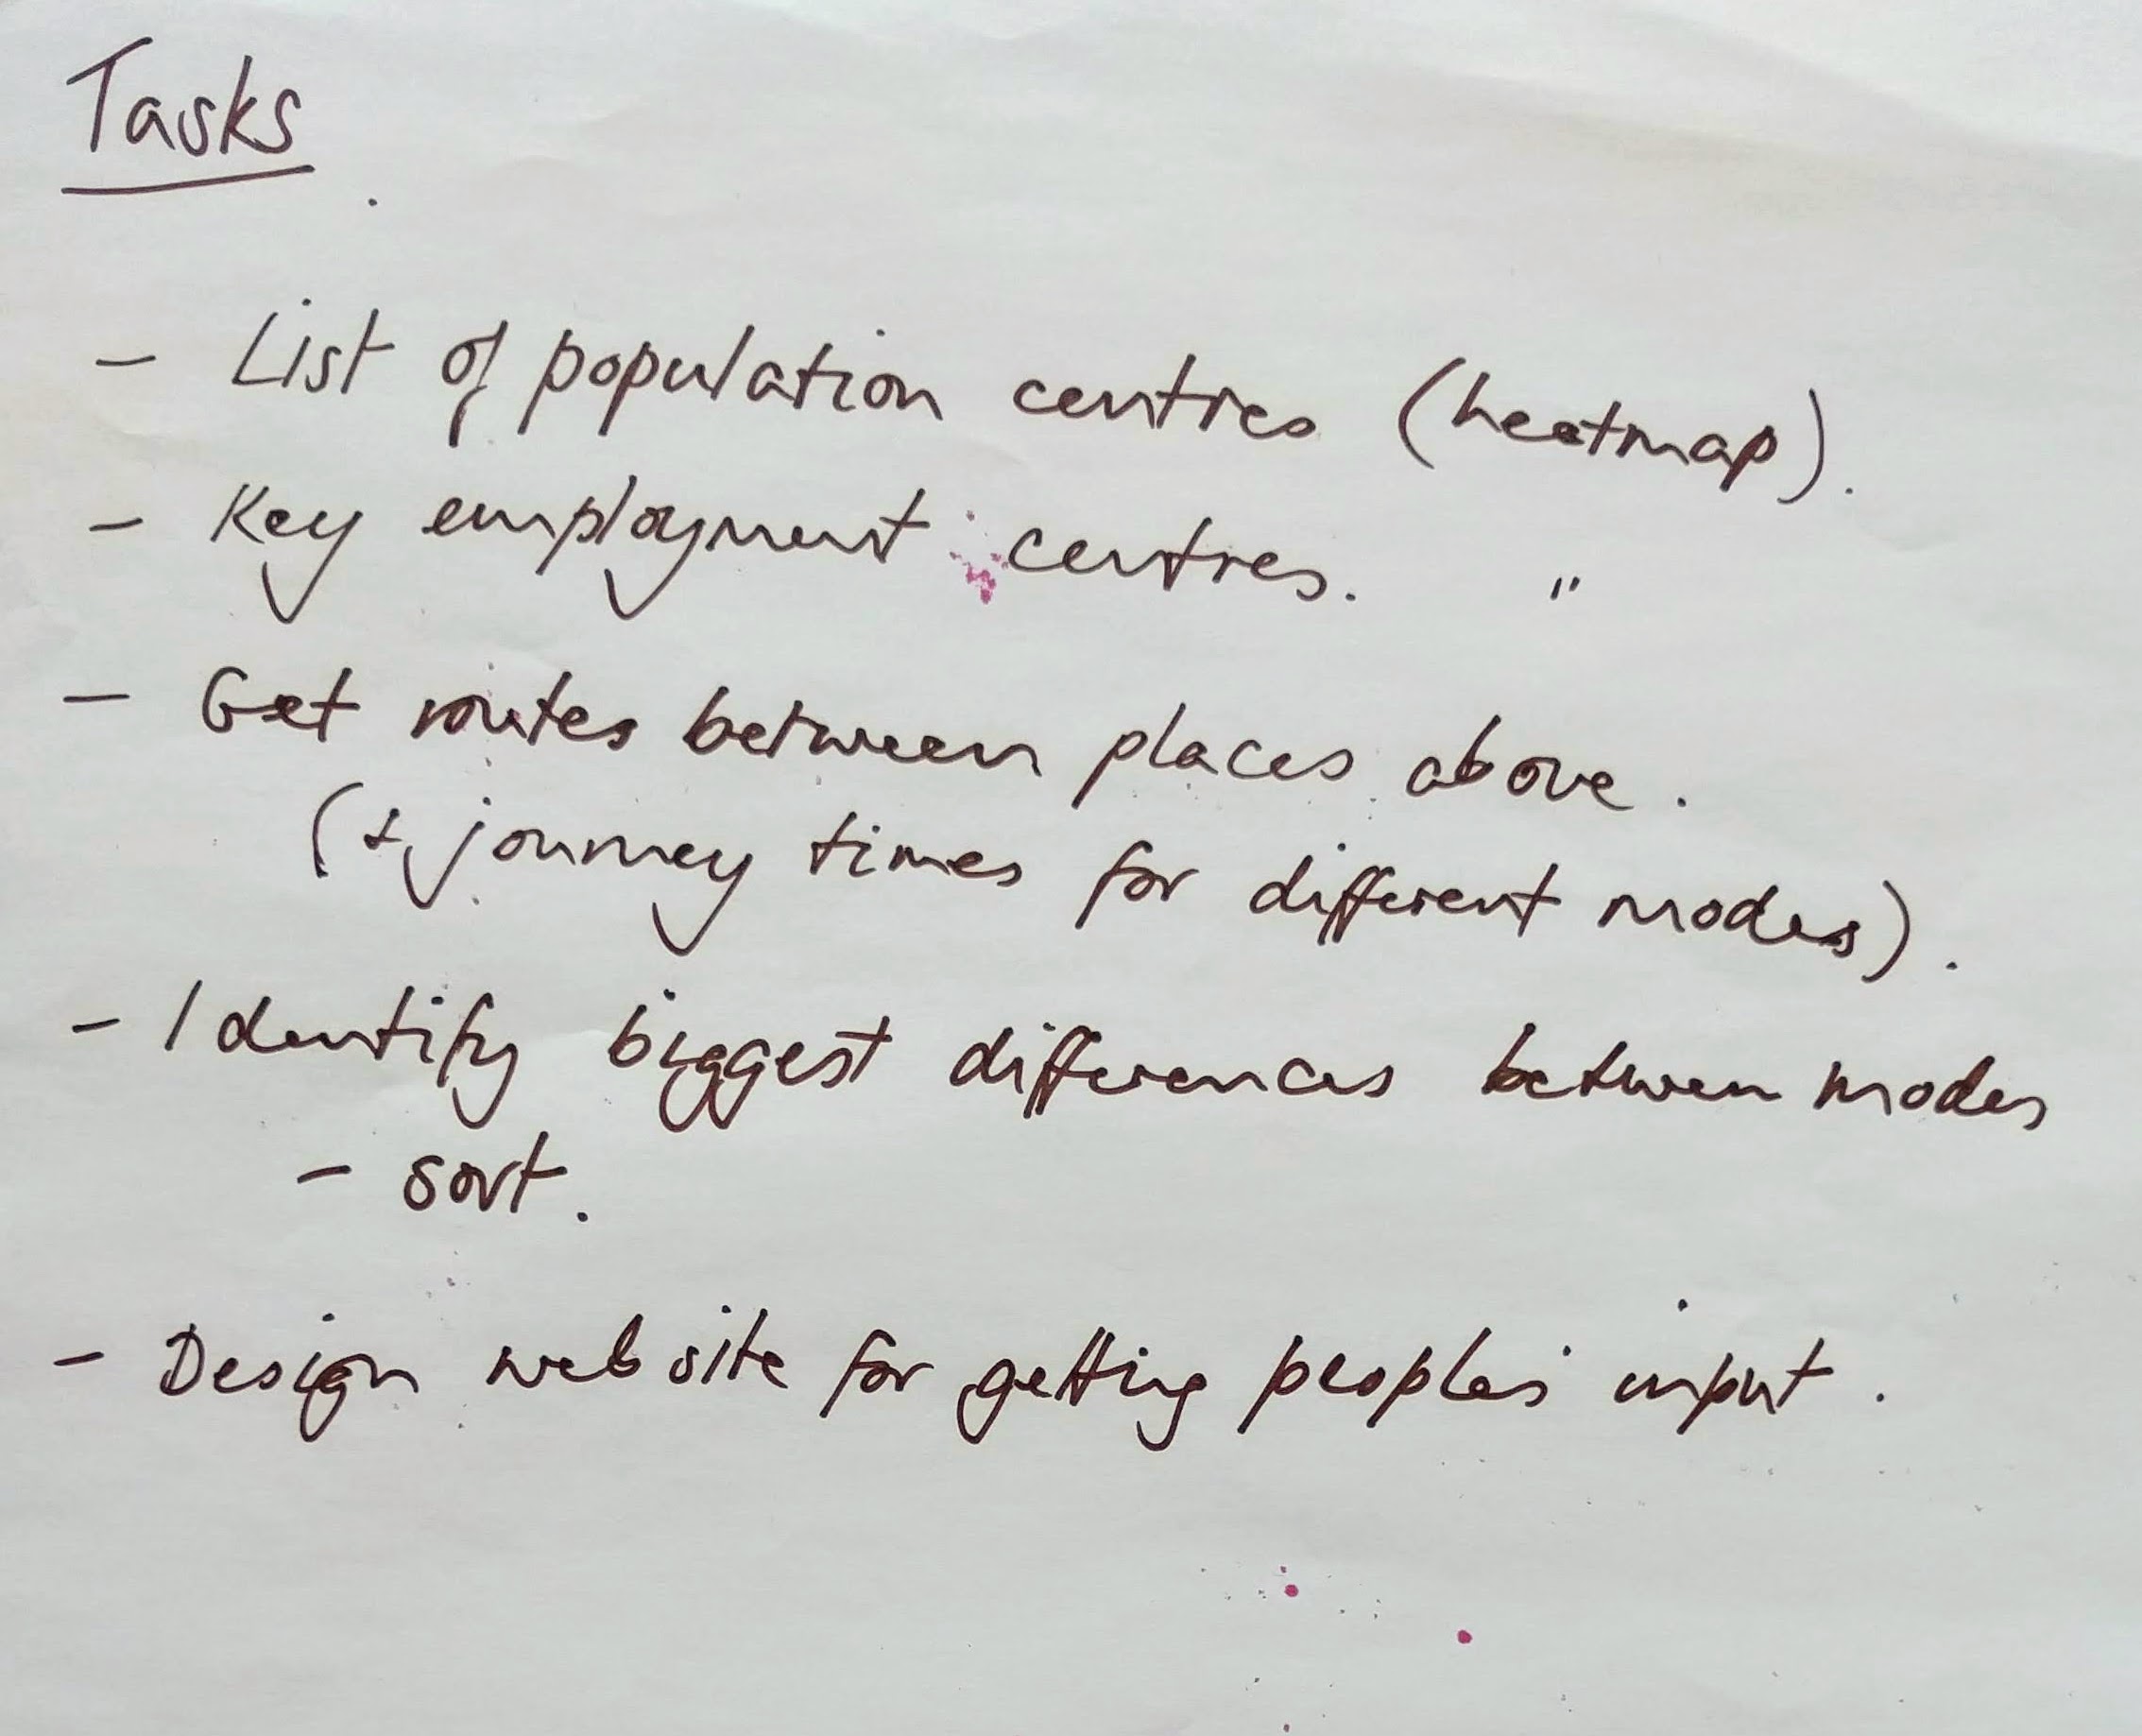 Tasks
- List of population centres (heatmap).
- Key employment centres. "
- Get routes between places above.
(+ journey times for different modes).
- Identify biggest differences between modes
- sort.
- Design website for getting people's input.